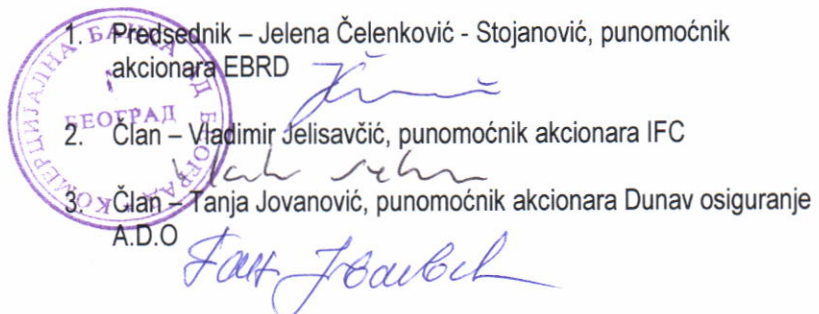 1. Predsednik – Jelena Čelenković - Stojanović, punomoćnik
akcionara EBRD
2. Član – Vladimir Jelisavčić, punomoćnik akcionara IFC
3. Član – Tanja Jovanović, punomoćnik akcionara Dunav osiguranje
A.D.O
КОМЕРЦИЈАЛНА БАНКА АД БЕОГРАД
БЕОГРАД